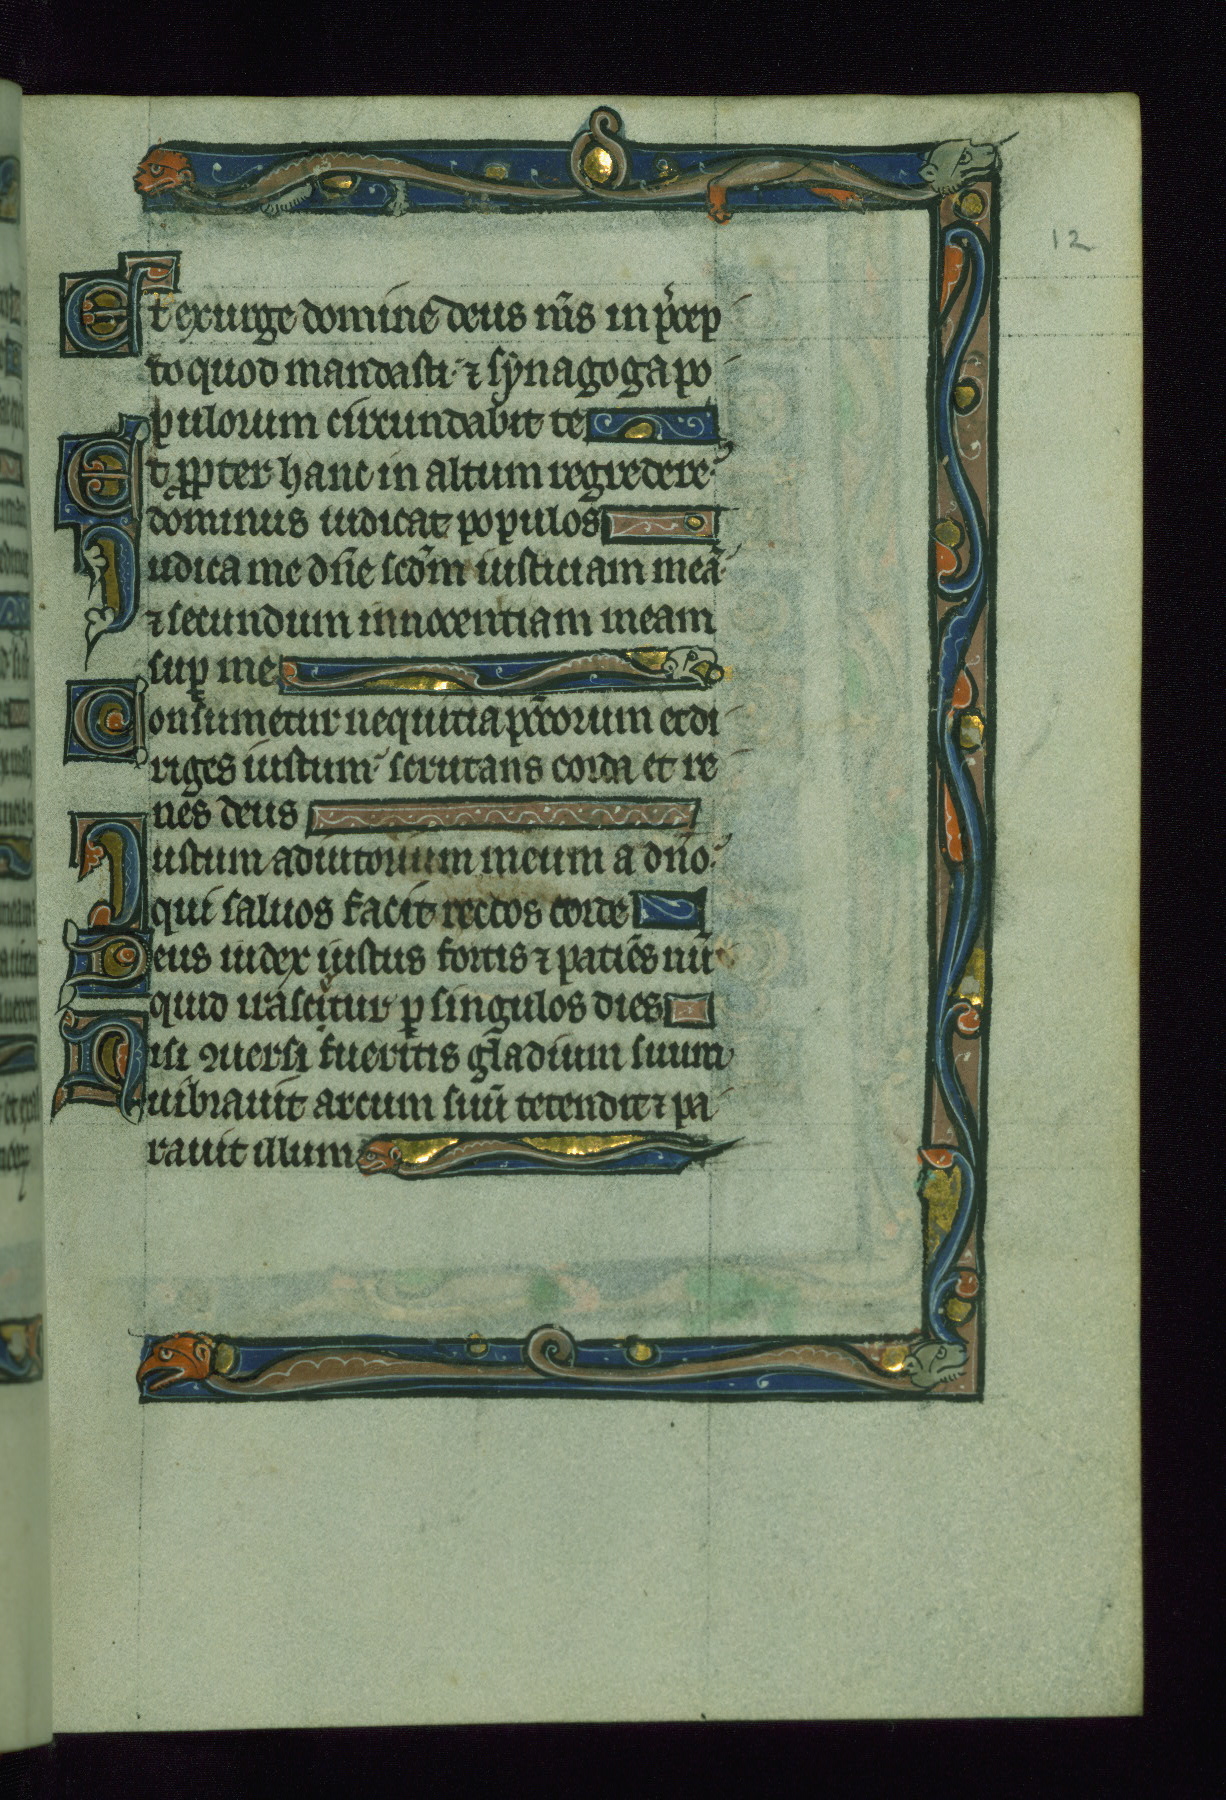 12
Et exurge domine deus nr̄s in p̄cep
to quod mandasti ⁊ synagoga po
pulorum circundabit te
Et ꝓpter hanc in altum regredere
dominus iudicat populos
Iudica me dn̄e scdm̄ iusticiam meā
⁊ secundum innocentiam meam
suꝑ me
Consumetur nequitia pccōrum et di
riges iustum scrutans corda et re
nes deus
Iustum adiutorium meum a dn̄o
qui saluos facit rectos corde
Deus iudex iustus fortis ⁊ patiēs nū
quid irascitur ꝑ singulos dies
Nisi ꝯuersi fueritis gladium suum
uibrauit arcum suū tetendit ⁊ pa
rauit illum